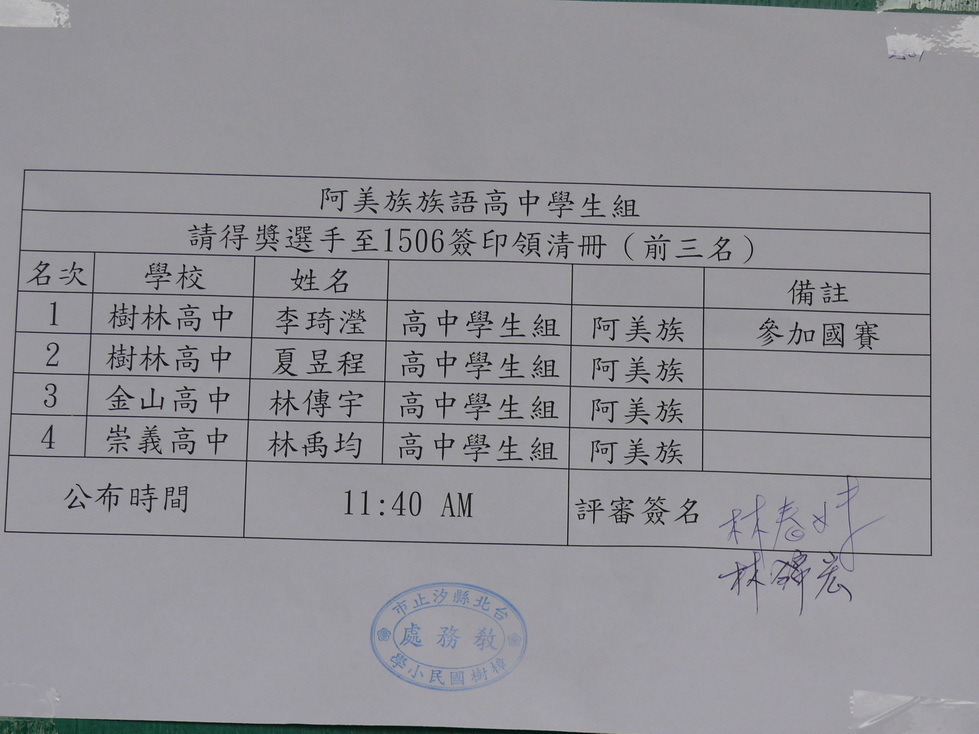 阿美族族語高中學生組
請得獎選手至1506簽印領清冊（前三名）
名次 學校 姓名 備註
1 樹林高中 李琦瀅 高中學生組 阿美族 參加國賽
2 樹林高中 夏昱程 高中學生組 阿美族
3 金山高中 林傳宇 高中學生組 阿美族
4 崇義高中 林禹均 高中學生組 阿美族
公布時間 11:40 AM 評審簽名
台北縣汐止市
教務處
樟樹國民小學